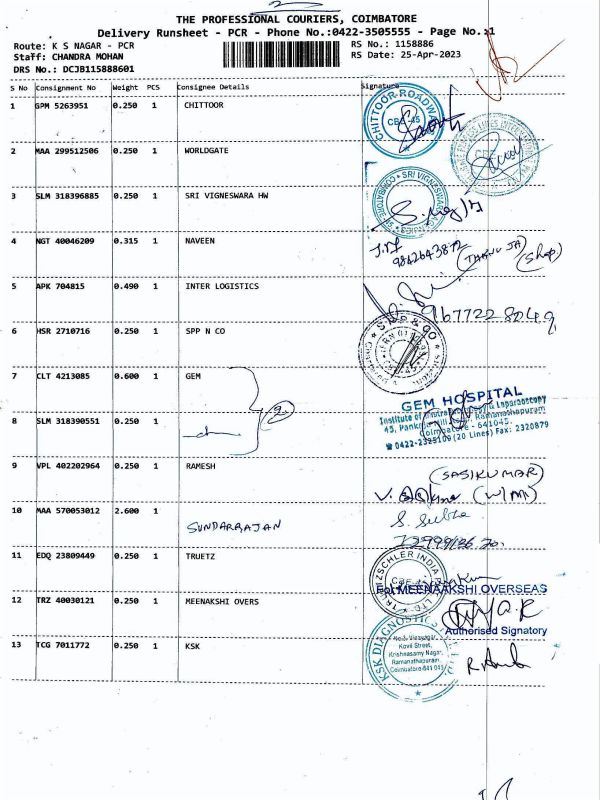 2
THE PROFESSIONAL COURIERS, COIMBATORE
Delivery Runsheet - PCR - Phone No.:0422-3505555 - Page No.:1
Route: K S NAGAR - PCR
RS No.: 1158886
Staff: CHANDRA MOHAN
RS Date: 25-Apr-2023
DRS No.: DCJB115888601
S No Consignment No Weight PCS Consignee Details Signature
1 GPM 5263951 0.250 1 CHITTOOR
CHITTOOR ROADWAYS
CBE-45
2 MAA 299512506 0.250 1 WORLDGATE
3 SLM 318396885 0.250 1 SRI VIGNESWARA HW
SRI VIGNESWARA
COIMBATORE
4 NGT 40046209 0.315 1 NAVEEN
9842643872 (Shop)
5 APK 704815 0.490 1 INTER LOGISTICS
9677228049
6 HSR 2710716 0.250 1 SPP N CO
7 CLT 4213085 0.600 1 GEM
2
GEM HOSPITAL
8 SLM 318390551 0.250 1
Coimbatore - 641045.
0422-2325100 (20 Lines) Fax: 2320879
9 VPL 402202964 0.250 1 RAMESH
(SASIKUMAR)
10 MAA 570053012 2.600 1 SUNDARRAJAN
S. Subha
11 EDQ 23809449 0.250 1 TRUETZ
TRUETZSCHLER INDIA
12 TRZ 40030121 0.250 1 MEENAKSHI OVERS
For MEENAAKSHI OVERSEAS
Authorised Signatory
13 TCG 7011772 0.250 1 KSK
KSK DIAGNOSTIC
Kovil Street,
Krishnasamy Nagar,
Ramanathapuram,
Coimbatore-641 045